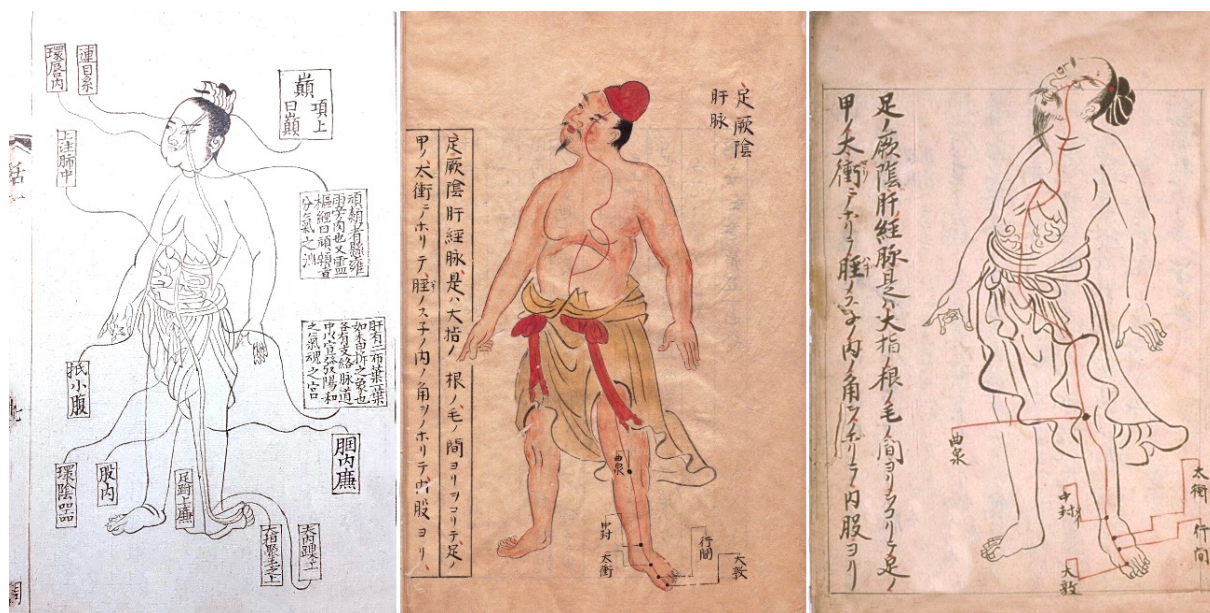 連目系
環唇内
巓
項上
曰巓
上注肺中
頏顙者懸雍
両旁肉也又靈
樞經曰頏顙
分氣之泄
肝有二布葉一葉
如木甲拆之象也
各有支絡脉道
中以宣發陽和
之氣魂之宮
抵小腹
環陰器
股内
足跗上廉
膕内廉
大指聚毛之上
去内踝一寸
足厥陰
肝脉
足厥陰肝経脉是ハ大指ノ根ノ毛ノ間ヨリヲコリテ足ノ
甲ノ太衝ニノホリテ脛ノスネノ内ノ角ヲノホリテ内股ヨリ
曲泉
中封
太衝
行間
大敦
足ノ厥陰肝経脉是ハ大指ノ根ノ毛ノ間ヨリヲコリテ足ノ
甲ノ太衝ニノホリテ脛ノスネノ内ノ角ヲノホリテ内股ヨリ
曲泉
中封
太衝
行間
大敦